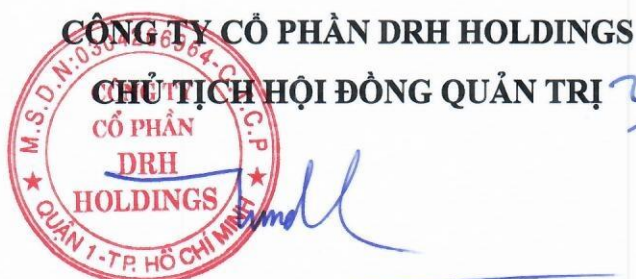 CÔNG TY CỔ PHẦN DRH HOLDINGS
CHỦ TỊCH HỘI ĐỒNG QUẢN TRỊ
CÔNG TY
CỔ PHẦN
DRH
HOLDINGS
QUẬN 1 - T.P. HỒ CHÍ MINH